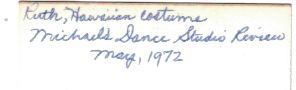 Ruth, Hawaiian costume
Michael's Dance Studio Review
May, 1972